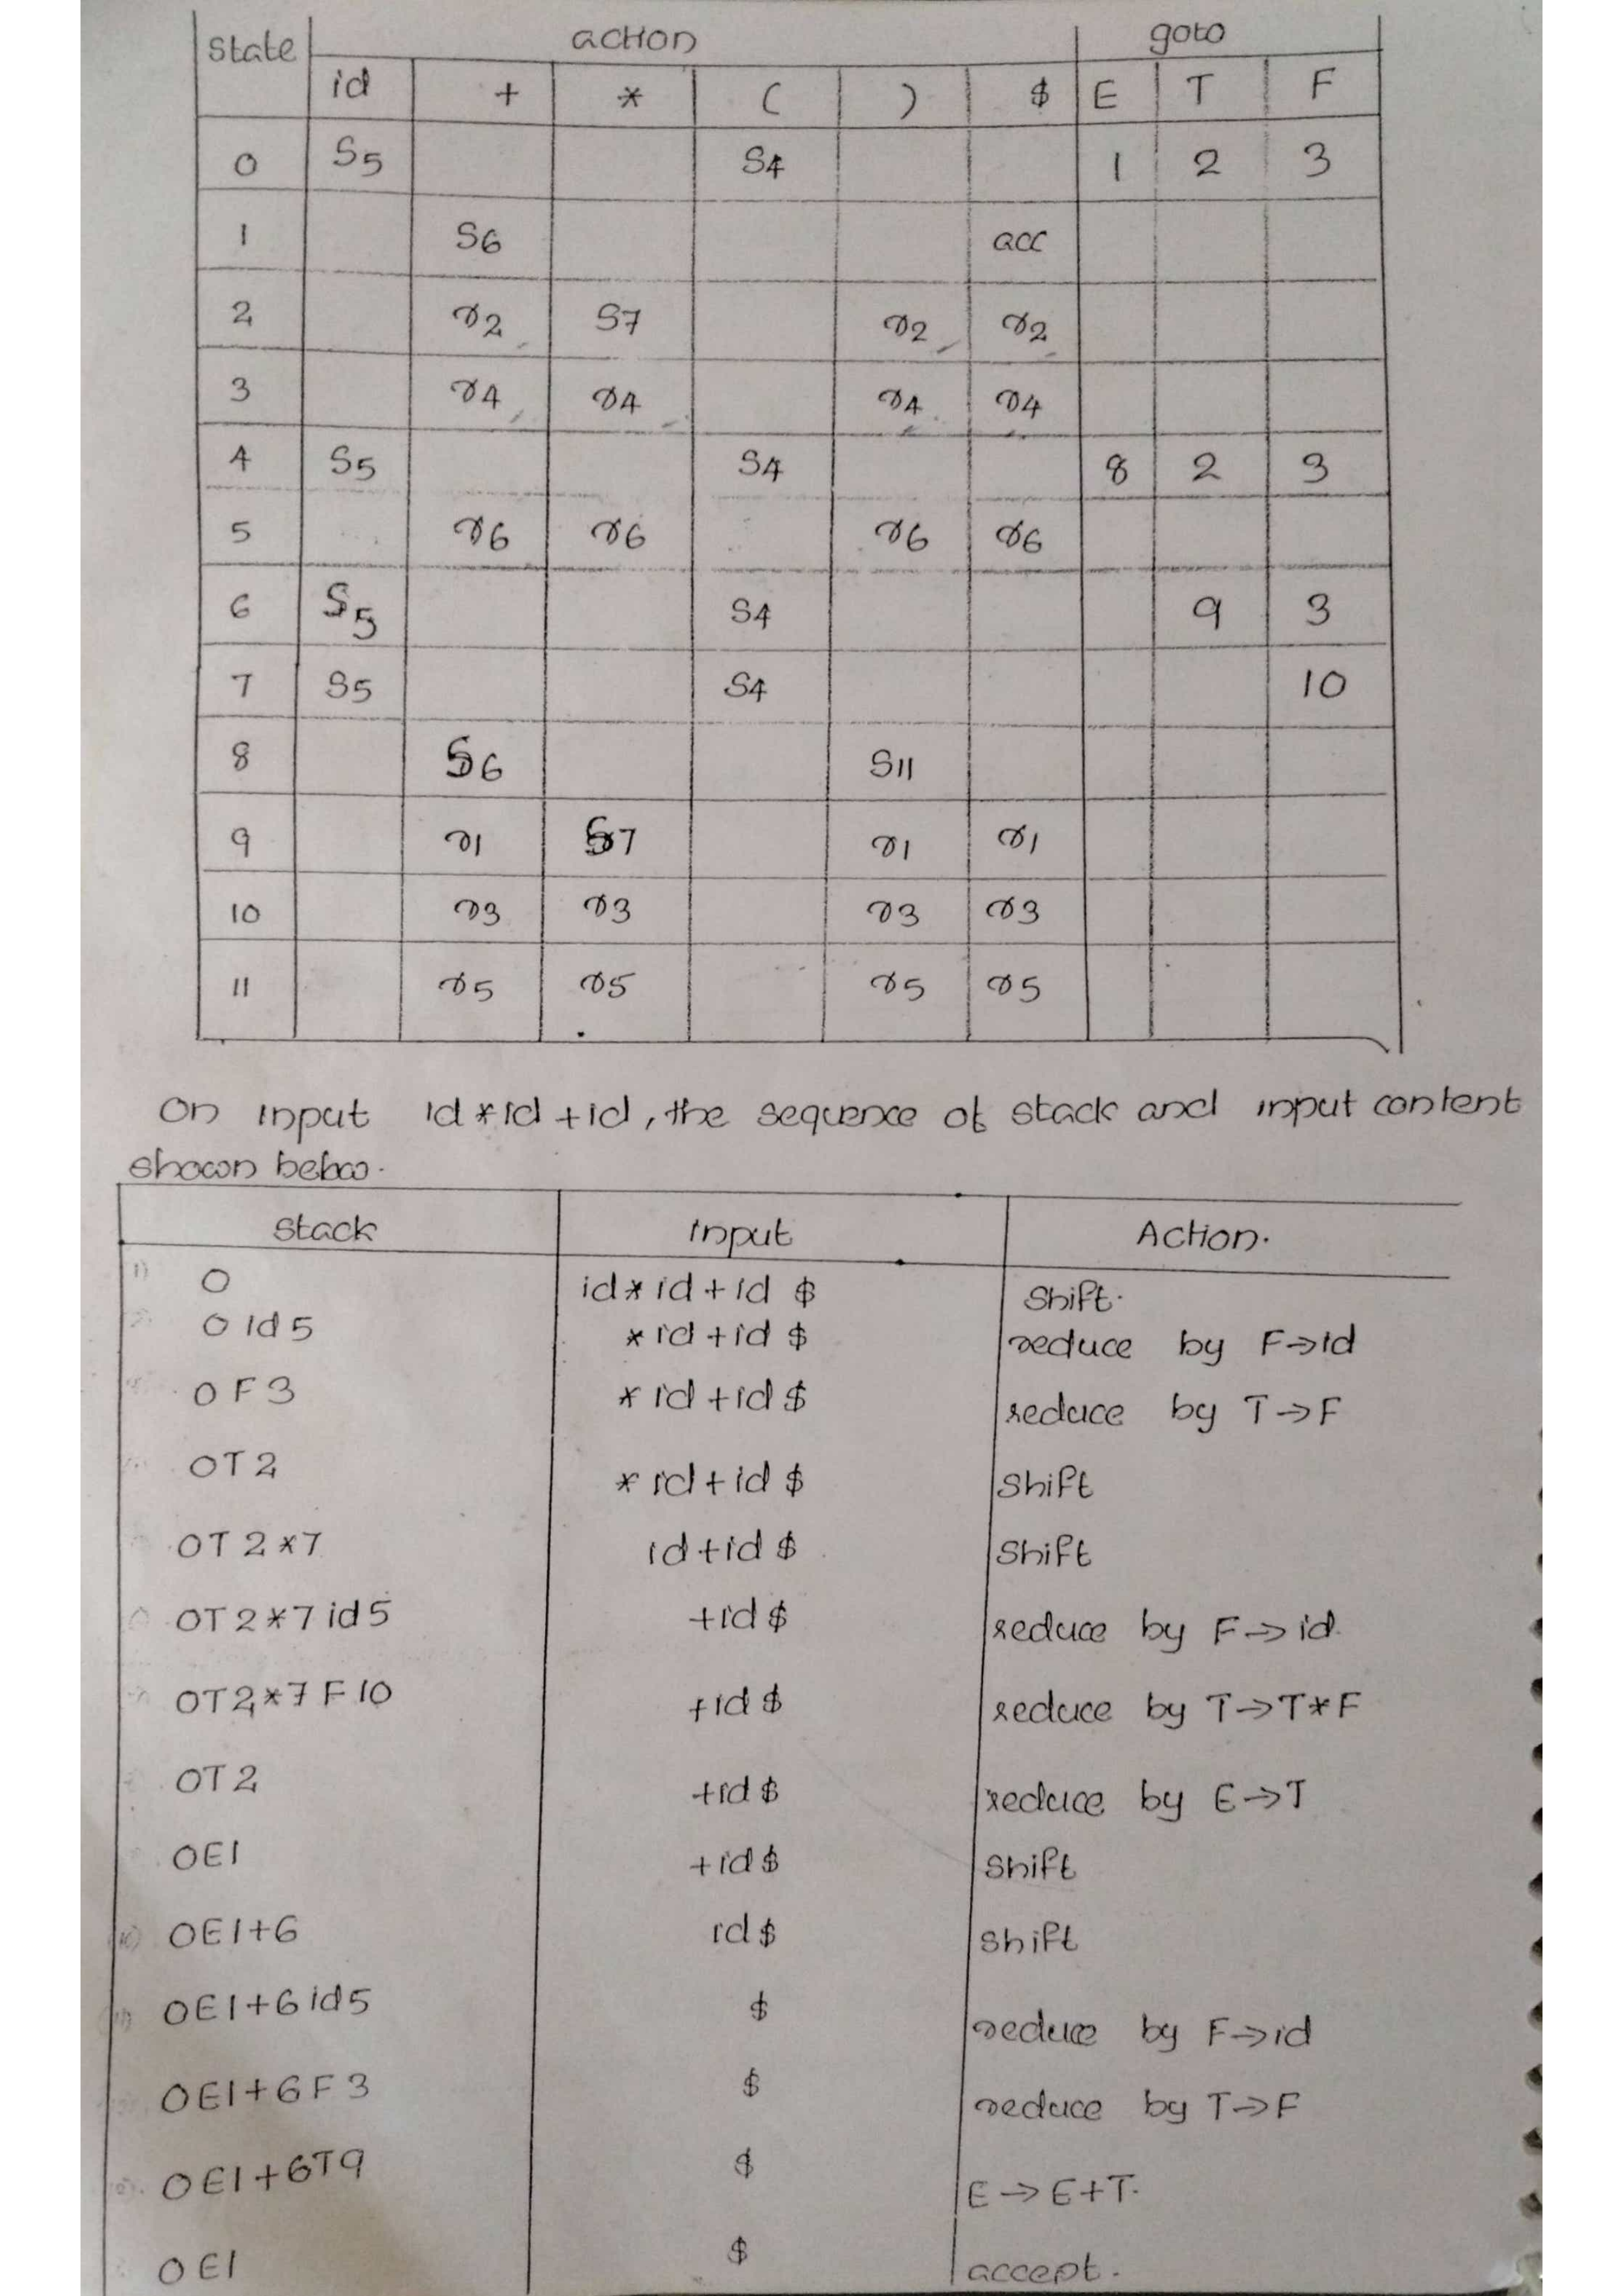 state action goto
id + * ( ) $ E T F
0 S5 S4 1 2 3
1 S6 acc
2 r2 S7 r2 r2
3 r4 r4 r4 r4
4 S5 S4 8 2 3
5 r6 r6 r6 r6
6 S5 S4 9 3
7 S5 S4 10
8 S6 S11
9 r1 S7 r1 r1
10 r3 r3 r3 r3
11 r5 r5 r5 r5
On input id*id+id, the sequence of stack and input content
shown below.
Stack Input Action.
1) 0 id*id+id $ Shift.
0 id 5 *id+id $ reduce by F→id
0 F 3 *id+id $ reduce by T→F
0T2 *id+id $ Shift
0T2*7 id+id $ Shift
0T2*7 id5 +id $ reduce by F→id.
0T2*7 F 10 +id $ reduce by T→T*F
0T2 +id $ reduce by E→T
0E1 +id $ Shift
10) 0E1+6 id $ Shift
11) 0E1+6 id5 $ reduce by F→id
0E1+6 F 3 $ reduce by T→F
0E1+6T9 $ E→E+T.
0E1 $ accept.